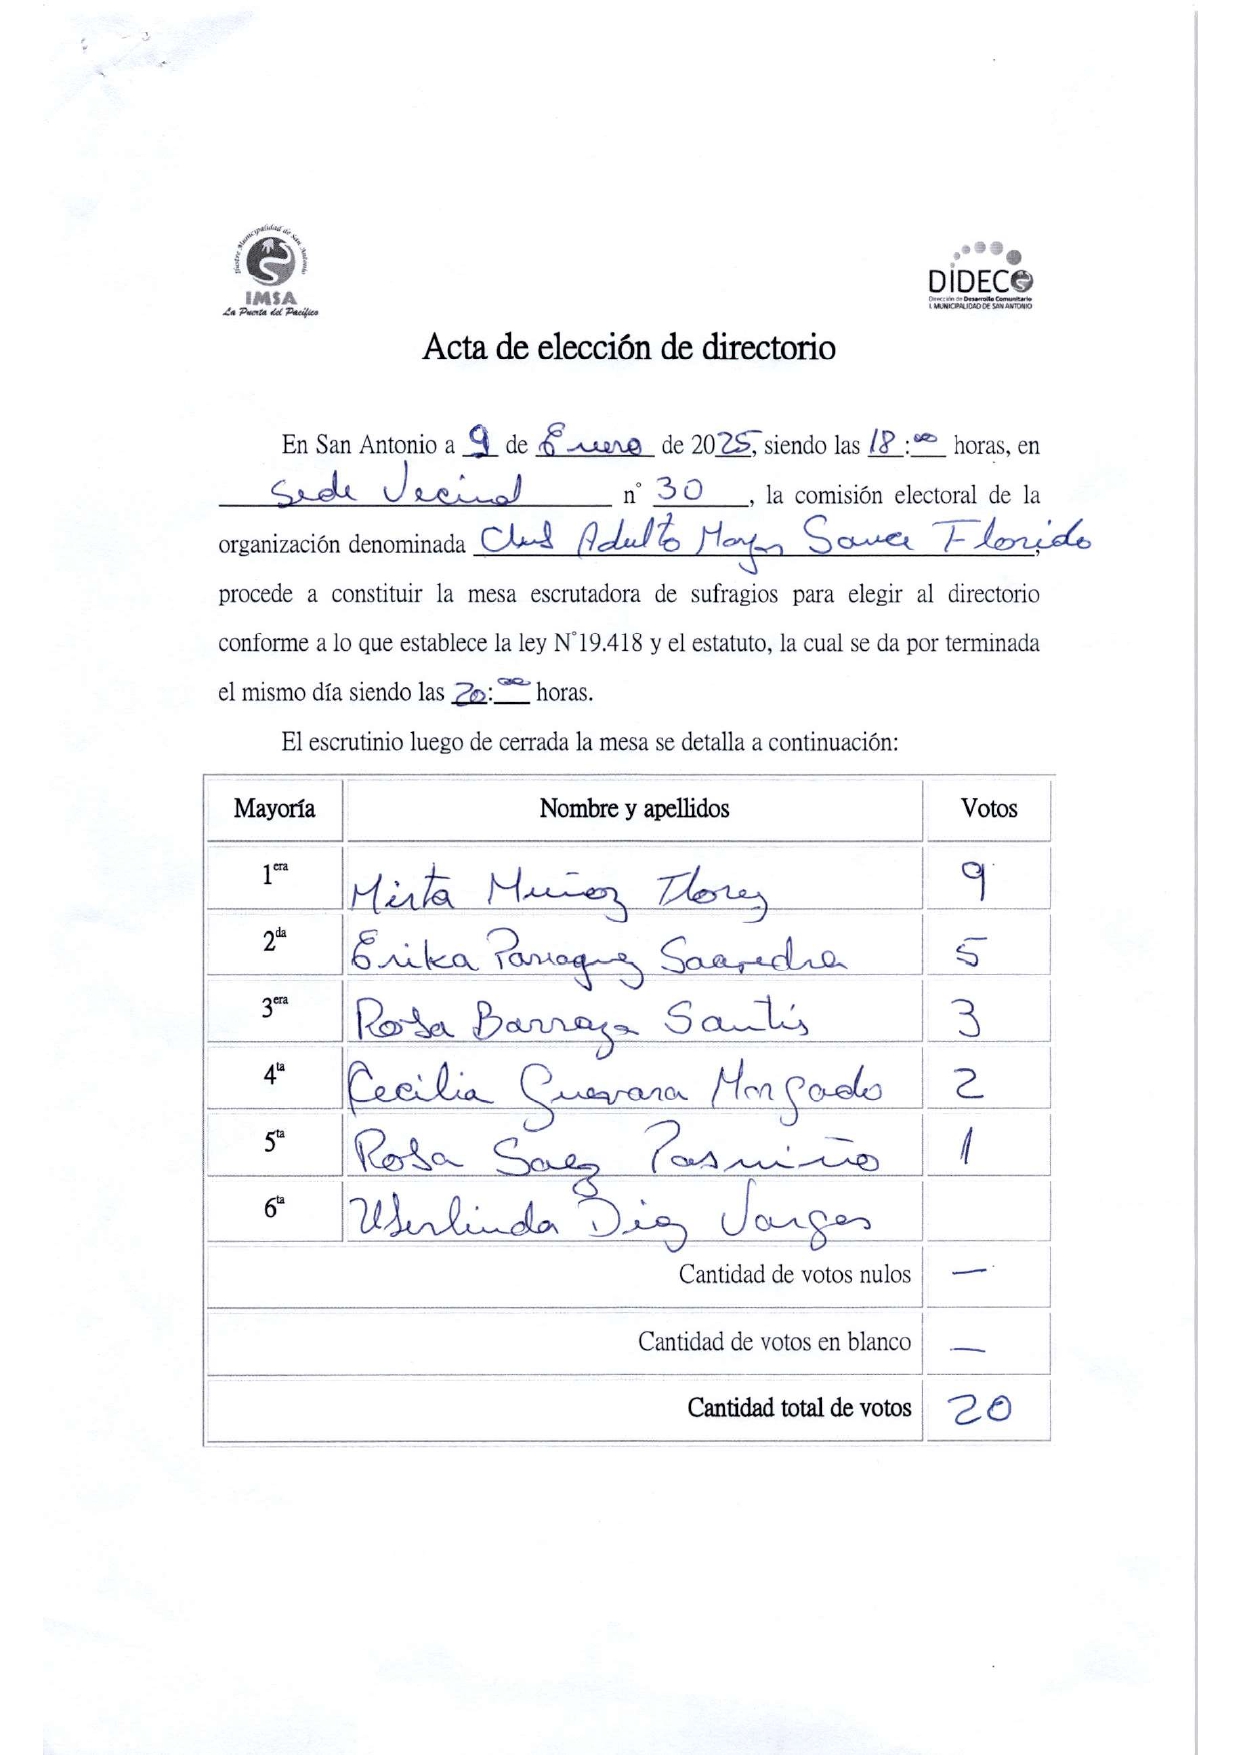 Ilustre Municipalidad de San Antonio
IMSA
La Puerta del Pacífico
DIDECO
Dirección de Desarrollo Comunitario
I. MUNICIPALIDAD DE SAN ANTONIO
Acta de elección de directorio
En San Antonio a 9 de Enero de 2025, siendo las 18:00 horas, en
Sede Vecinal n° 30, la comisión electoral de la
organización denominada Club Adulto Mayor Sauce Florido,
procede a constituir la mesa escrutadora de sufragios para elegir al directorio
conforme a lo que establece la ley N°19.418 y el estatuto, la cual se da por terminada
el mismo día siendo las 20:00 horas.
El escrutinio luego de cerrada la mesa se detalla a continuación:
Mayoría Nombre y apellidos Votos
1era Mirta Muñoz Flores 9
2da Erika Parraguez Saavedra 5
3era Rosa Barraza Santis 3
4ta Cecilia Guevara Morgado 2
5ta Rosa Saez Pasmiño 1
6ta Uberlinda Diaz Vargas
Cantidad de votos nulos —
Cantidad de votos en blanco —
Cantidad total de votos 20